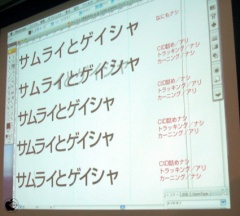 サムライとゲイシャ
なにもナシ
サムライとゲイシャ
CID詰め／アリ
トラッキング／ナシ
カーニング／ナシ
サムライとゲイシャ
CID詰め／アリ
トラッキング／ナシ
カーニング／アリ
サムライとゲイシャ
CID詰めナシ
トラッキング／アリ
カーニング／アリ
サムライとゲイシャ
CID詰めナシ
トラッキング／アリ
カーニング／ナシ